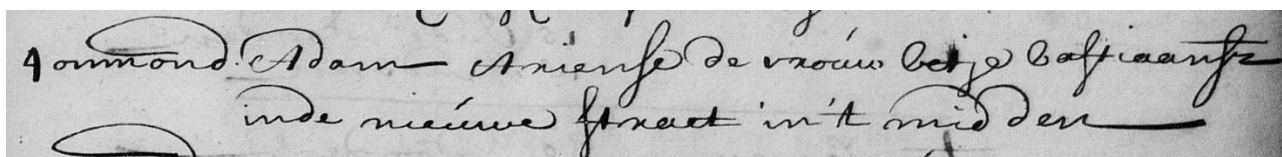 4 onmond Adam Ariense de vrouw betje bastiaansz
inde nieuwe straet in't midden